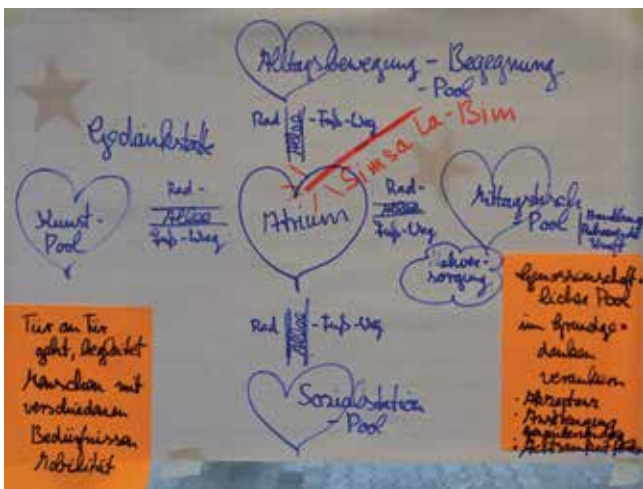 Alltagsbewegung - Begegnung
- Pool
Rad
Allee
- Fuß-Weg
Simsa La-Bim
Gedänkstätte
Kunst-
Pool
Rad -
Allee
Fuß-Weg
Atrium
Rad -
Allee
Fuß-Weg
Mittagstisch
- Pool
sorgung
Rad
Allee
- Fuß-Weg
Sozialstation
- Pool
Tür an Tür
geht, begleitet
Menschen mit
verschiedenen
Bedürfnissen
Mobilität
Genossenschaft-
licher Pool
im Grundge-
danken
verankern
· Akzeptanz